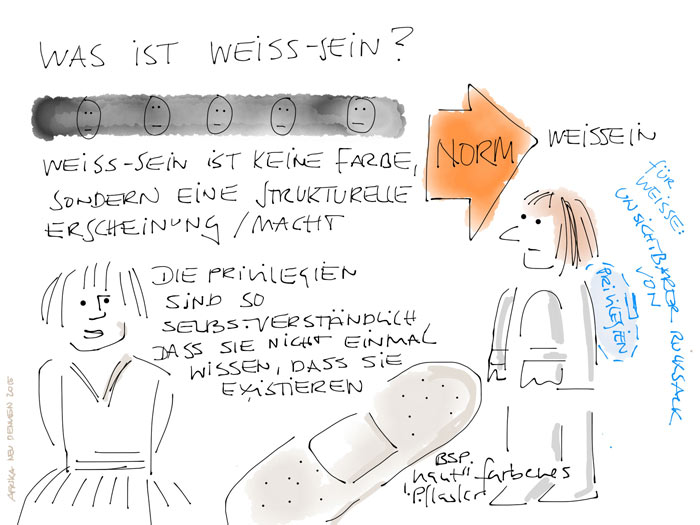 WAS IST WEISS-SEIN?
WEISS-SEIN IST KEINE FARBE,
SONDERN EINE STRUKTURELLE
ERSCHEINUNG/MACHT
NORM
WEISSEIN
FÜR
WEISSE:
UNSICHTBARER RUCKSACK
VON
PRIVILEGIEN
DIE PRIVILEGIEN
SIND SO
SELBSTVERSTÄNDLICH
DASS SIE NICHT EINMAL
WISSEN, DASS SIE
EXISTIEREN
BSP.
"haut"farbenes
Pflaster
AFRIKA NEU DENKEN 2015